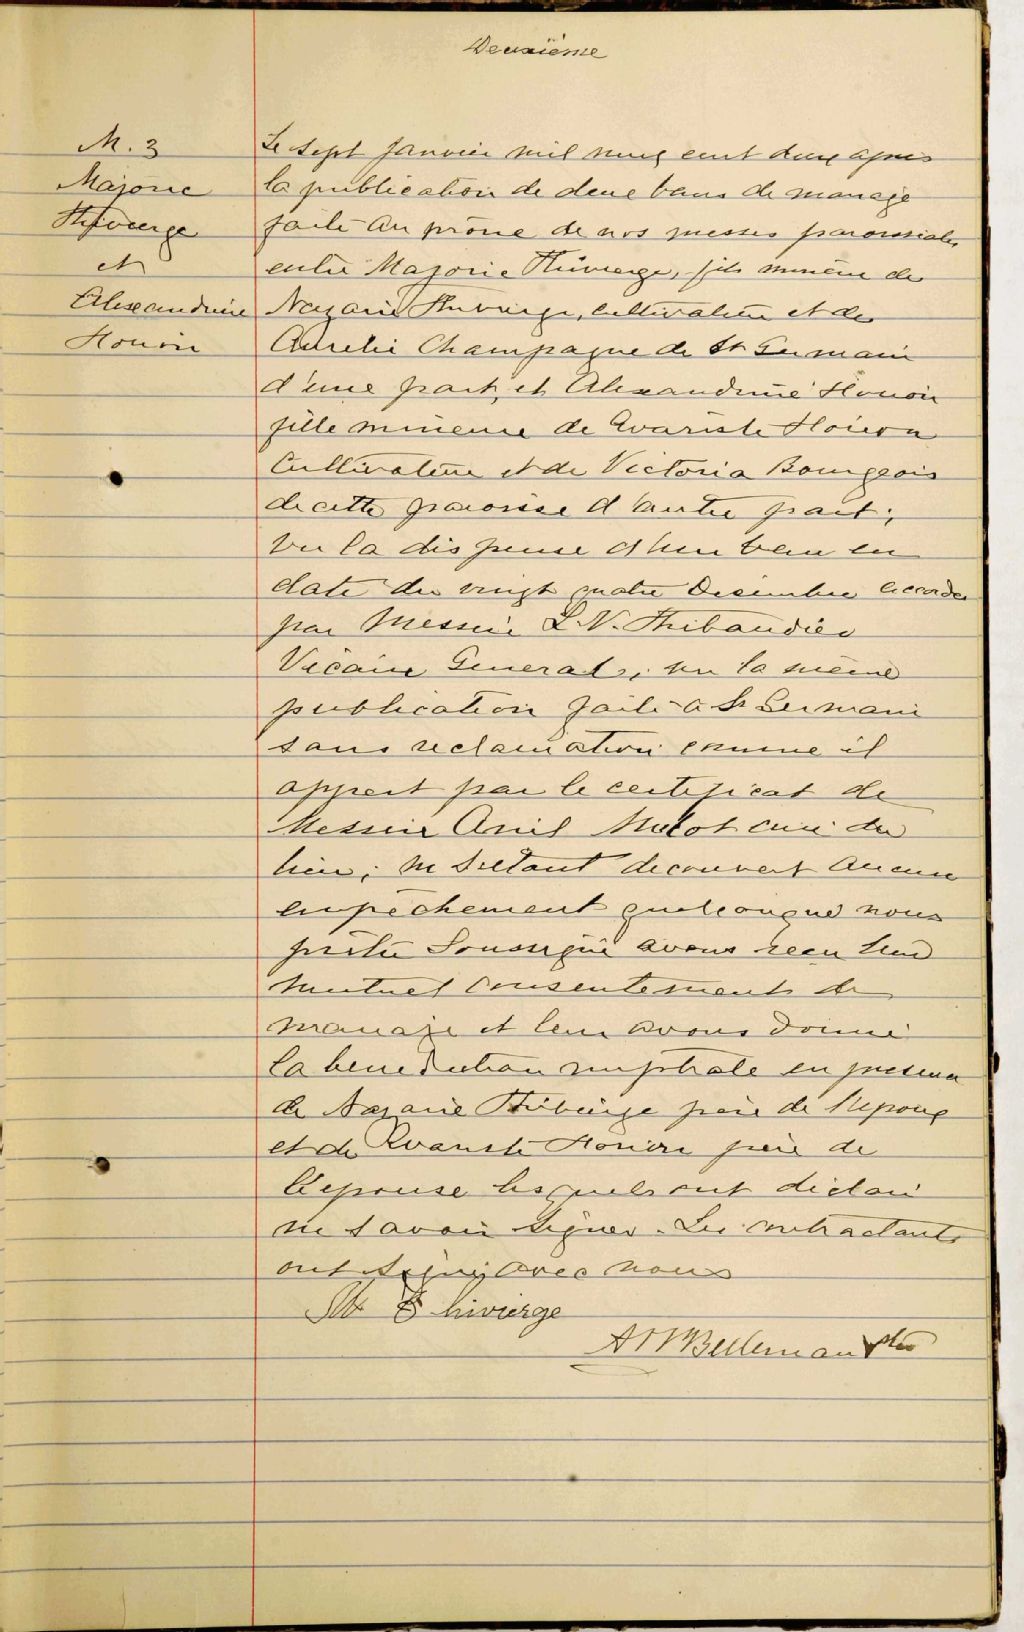 Deuxième
M. 3
Majoric
Thivierge
et
Alexandrine
Houon
Le sept janvier mil neuf cent deux après
la publication de deux bans de mariage
faite au prône de nos messes paroissiales
entre Majoric Thivierge, fils mineur de
Nazaire Thivierge, cultivateur et de
Aurelie Champagne de St Germain
d'une part, et Alexandrine Houon
fille mineure de Evariste Houon
Cultivateur et de Victoria Bourgeois
de cette paroisse d'autre part;
vu la dispense d'un ban en
date du vingt quatre Decembre accordée
par Messire L. N. Thibaudier
Vicaire General; vu la même
publication faite à St Germain
sans reclamation comme il
appert par le certificat de
Messire curé du
lieu; ne s'etant decouvert aucun
empêchement quelconque nous
prêtre Soussigné avons reçu leur
mutuel consentement de
mariage et leur avons donné
la benediction nuptiale en presence
de Nazaire Thivierge père de l'epoux
et de Evariste Houon père de
l'epouse lesquels ont déclaré
ne savoir signer. Les contractants
ont signé avec nous
Thivierge
Bellemare Ptre